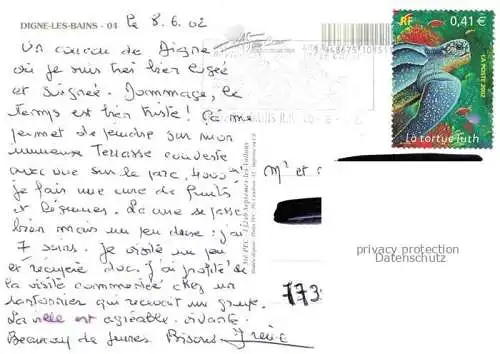 DIGNE-LES-BAINS - 04
Le 8.6.02
Un coucou de Digne
où je suis très bien logée
et soignée. Dommage, le
temps est bien triste ! Ça me
permet de peindre sur mon
immense Terrasse couverte
avec vue sur le parc, 4000 m²
je fais une cure de fruits
et légumes. La cure se passe
bien mais un peu dure : j'ai
7 soins. je visite un peu
et récupère dur. J'ai profité de
la visite commentée chez un
santonnier qui recevait un groupe.
La ville est agréable, vivante.
Beaucoup de jeunes. Bisous Irène
RF 0,41 €
LA POSTE 2002
La tortue luth
M² et
773
privacy protection
Datenschutz